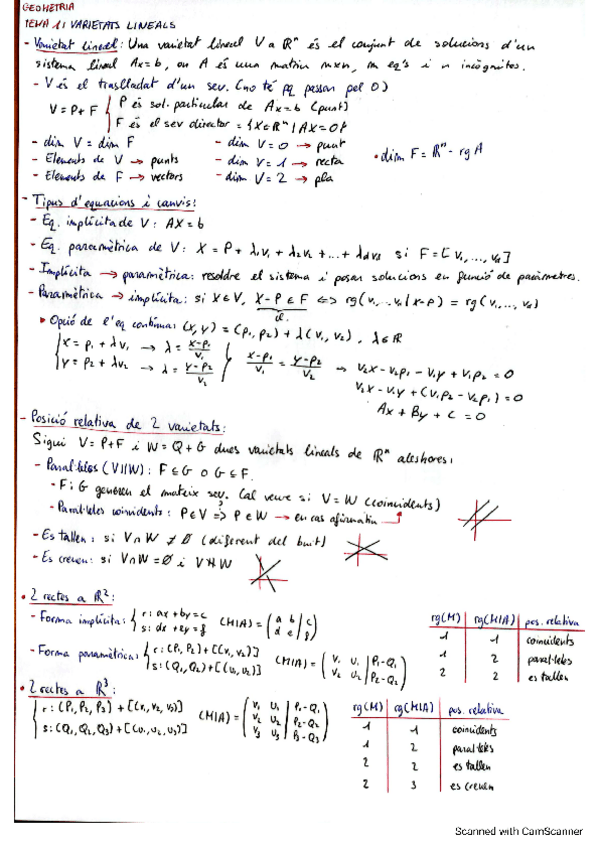 GEOMETRIA
TEMA 1: VARIETATS LINEALS
- Varietat lineal: Una varietat lineal V a ℝⁿ és el conjunt de solucions d'un
sistema lineal Ax=b, on A és una matriu m×n, m eq's i n incògnites.
- V és el traslladat d'un sev. (no té pq passar pel 0)
V = P + F { P és sol. particular de Ax=b (punt)
F és el sev director = {X∈ℝⁿ | AX=0}
- dim V = dim F - dim V = 0 → punt • dim F = ℝⁿ - rg A
- Elements de V → punts - dim V = 1 → recta
- Elements de F → vectors - dim V = 2 → pla
- Tipus d'equacions i canvis:
- Eq. implícita de V: AX = b
- Eq. paramètrica de V: X = P + λ₁v₁ + λ₂v₂ + ... + λdvd si F = [v₁, ..., vd]
- Implícita → paramètrica: resoldre el sistema i posar solucions en funció de paràmetres.
- Paramètrica → implícita: si X∈V, X-P ∈ F ⟺ rg(v₁ ... vd | x-p) = rg(v₁, ..., vd)
▸ Opció de l'eq contínua: (x, y) = (p₁, p₂) + λ(v₁, v₂), λ∈ℝ
{ x = p₁ + λv₁ → λ = x-p₁/v₁ } x-p₁/v₁ = y-p₂/v₂ → v₂x - v₂p₁ - v₁y + v₁p₂ = 0
{ y = p₂ + λv₂ → λ = y-p₂/v₂ v₂x - v₁y + (v₁p₂ - v₂p₁) = 0
Ax + By + C = 0
- Posició relativa de 2 varietats:
Sigui V = P+F i W = Q+G dues varietats lineals de ℝⁿ aleshores:
- Paral·leles (V//W): F ⊆ G o G ⊆ F.
- F i G generen el mateix sev. Cal veure si V = W (coincidents)
- Paral·leles coincidents: P∈V ⇒ P∈W → en cas afirmatiu
- Es tallen: si V∩W ≠ ∅ (diferent del buit)
- Es creuen: si V∩W = ∅ i V∦W
• 2 rectes a ℝ²:
- Forma implícita: { r: ax + by = c (M|A) = (a b | c
s: dx + ey = f d e | f)
- Forma paramètrica: { r: (P₁, P₂) + [(v₁, v₂)] (M|A) = (v₁ u₁ | P₁-Q₁
s: (Q₁, Q₂) + [(u₁, u₂)] v₂ u₂ | P₂-Q₂)
rg(M) rg(M|A) pos. relativa
1 1 coincidents
1 2 paral·leles
2 2 es tallen
• 2 rectes a ℝ³:
{ r: (P₁, P₂, P₃) + [(v₁, v₂, v₃)] (M|A) = (v₁ u₁ | P₁-Q₁
s: (Q₁, Q₂, Q₃) + [(u₁, u₂, u₃)] v₂ u₂ | P₂-Q₂
v₃ u₃ | P₃-Q₃)
rg(M) rg(M|A) pos. relativa
1 1 coincidents
1 2 paral·leles
2 2 es tallen
2 3 es creuen
Scanned with CamScanner